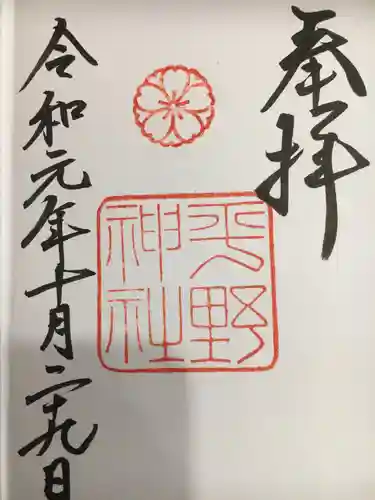 奉拝
平野
神社
令和元年十月二十九日